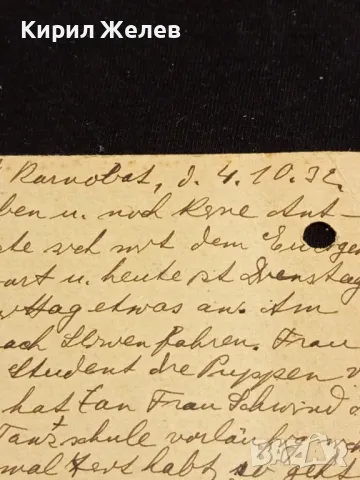 Кирил Желев
Karnobat, d. 4.10.32.
ben u. noch keine Ant-
te sich mit dem
art u. heute ist Dienstag
etwas an. Am
ach Sliwen fahren. Frau
Student die Puppen v
hat Frau Schwind
Tanzschule vorläufig
mal Zeit habt, so geht
bazar